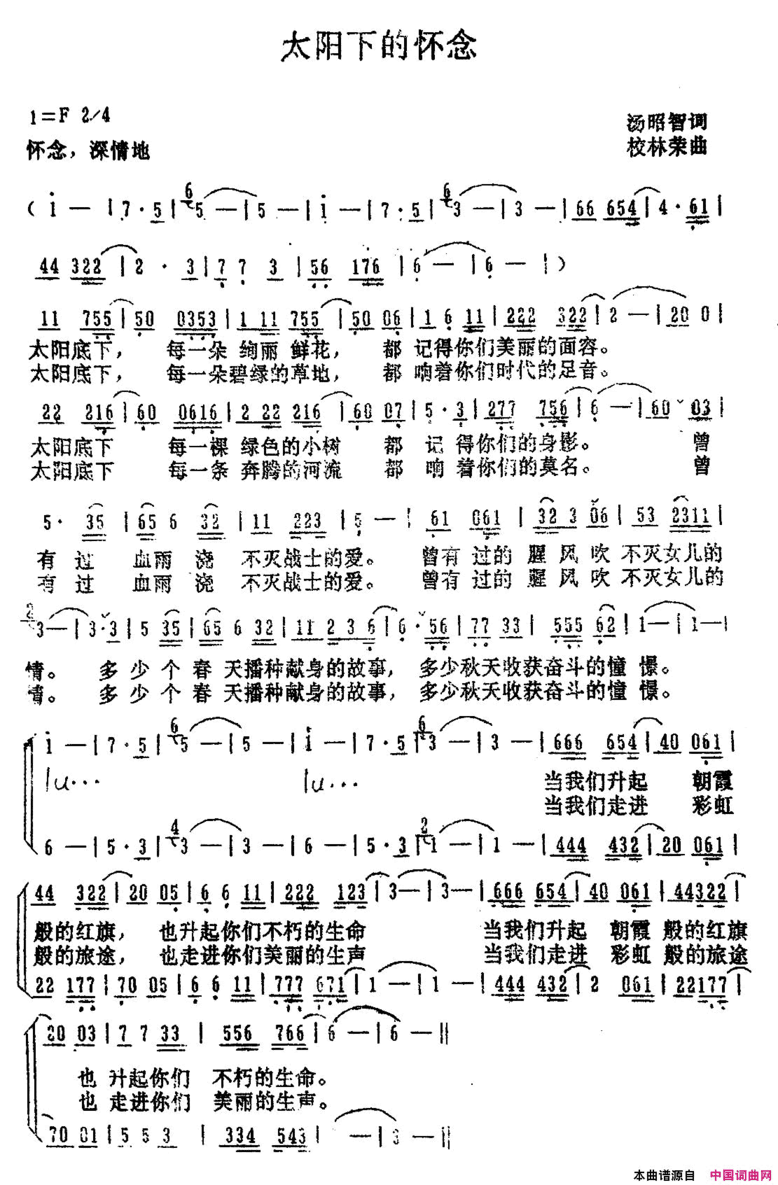 太阳下的怀念
1=F 2/4
汤昭智词
怀念，深情地
校林荣曲
( i — | 7· 5 | 6 5 — | 5 — | i — | 7· 5 | 6 3 — | 3 — | 66 654 | 4· 61 |
44 322 | 2· 3 | 7 7 3 | 56 176 | 6 — | 6 — | )
11 755 | 50 0353 | 1 11 755 | 50 06 | 1 6 11 | 222 322 | 2 — | 20 0 |
太阳底下， 每一朵 绚丽 鲜花， 都 记得你们美丽的面容。
太阳底下， 每一朵碧绿的草地， 都 响着你们时代的足音。
22 216 | 60 0616 | 2 22 216 | 60 07 | 5· 3 | 277 756 | 6 — | 60 03 |
太阳底下 每一棵 绿色的小树 都 记 得你们的身影。 曾
太阳底下 每一条 奔腾的河流 都 响 着你们的莫名。 曾
5· 35 | 65 6 32 | 11 223 | 5 — | 61 061 | 32 3 06 | 53 2311 |
有 过 血雨 浇 不灭战士的爱。 曾有 过的 腥 风 吹 不灭女儿的
有 过 血雨 浇 不灭战士的爱。 曾有 过的 腥 风 吹 不灭女儿的
2 3 — | 3· 3 | 5 35 | 65 6 32 | 11 2 3 6 | 6· 56 | 77 33 | 555 62 | 1 — | 1 — |
情。 多 少 个 春 天播种献身的故事， 多少秋天收获奋斗的憧 憬。
情。 多 少 个 春 天播种献身的故事， 多少秋天收获奋斗的憧 憬。
i — | 7· 5 | 6 5 — | 5 — | i — | 7· 5 | 6 3 — | 3 — | 666 654 | 40 061 |
lu… lu… 当我们升起 朝霞
当我们走进 彩虹
6 — | 5· 3 | 4 3 — | 3 — | 6 — | 5· 3 | 2 1 — | 1 — | 444 432 | 20 061 |
44 322 | 20 05 | 6 6 11 | 222 123 | 3 — | 3 — | 666 654 | 40 061 | 44322 |
般的红旗， 也升起你们不朽的生命 当我们升起 朝霞 般的红旗
般的旅途， 也走进你们美丽的生声 当我们走进 彩虹 般的旅途
22 177 | 70 05 | 6 6 11 | 777 671 | 1 — | 1 — | 444 432 | 2 061 | 22177 |
20 03 | 7 7 33 | 556 766 | 6 — | 6 — ||
也 升起你们 不朽的生命。
也 走进你们 美丽的生声。
70 01 | 5 5 3 | 334 543 | 3 — | 3 — ||
本曲谱源自 中国词曲网